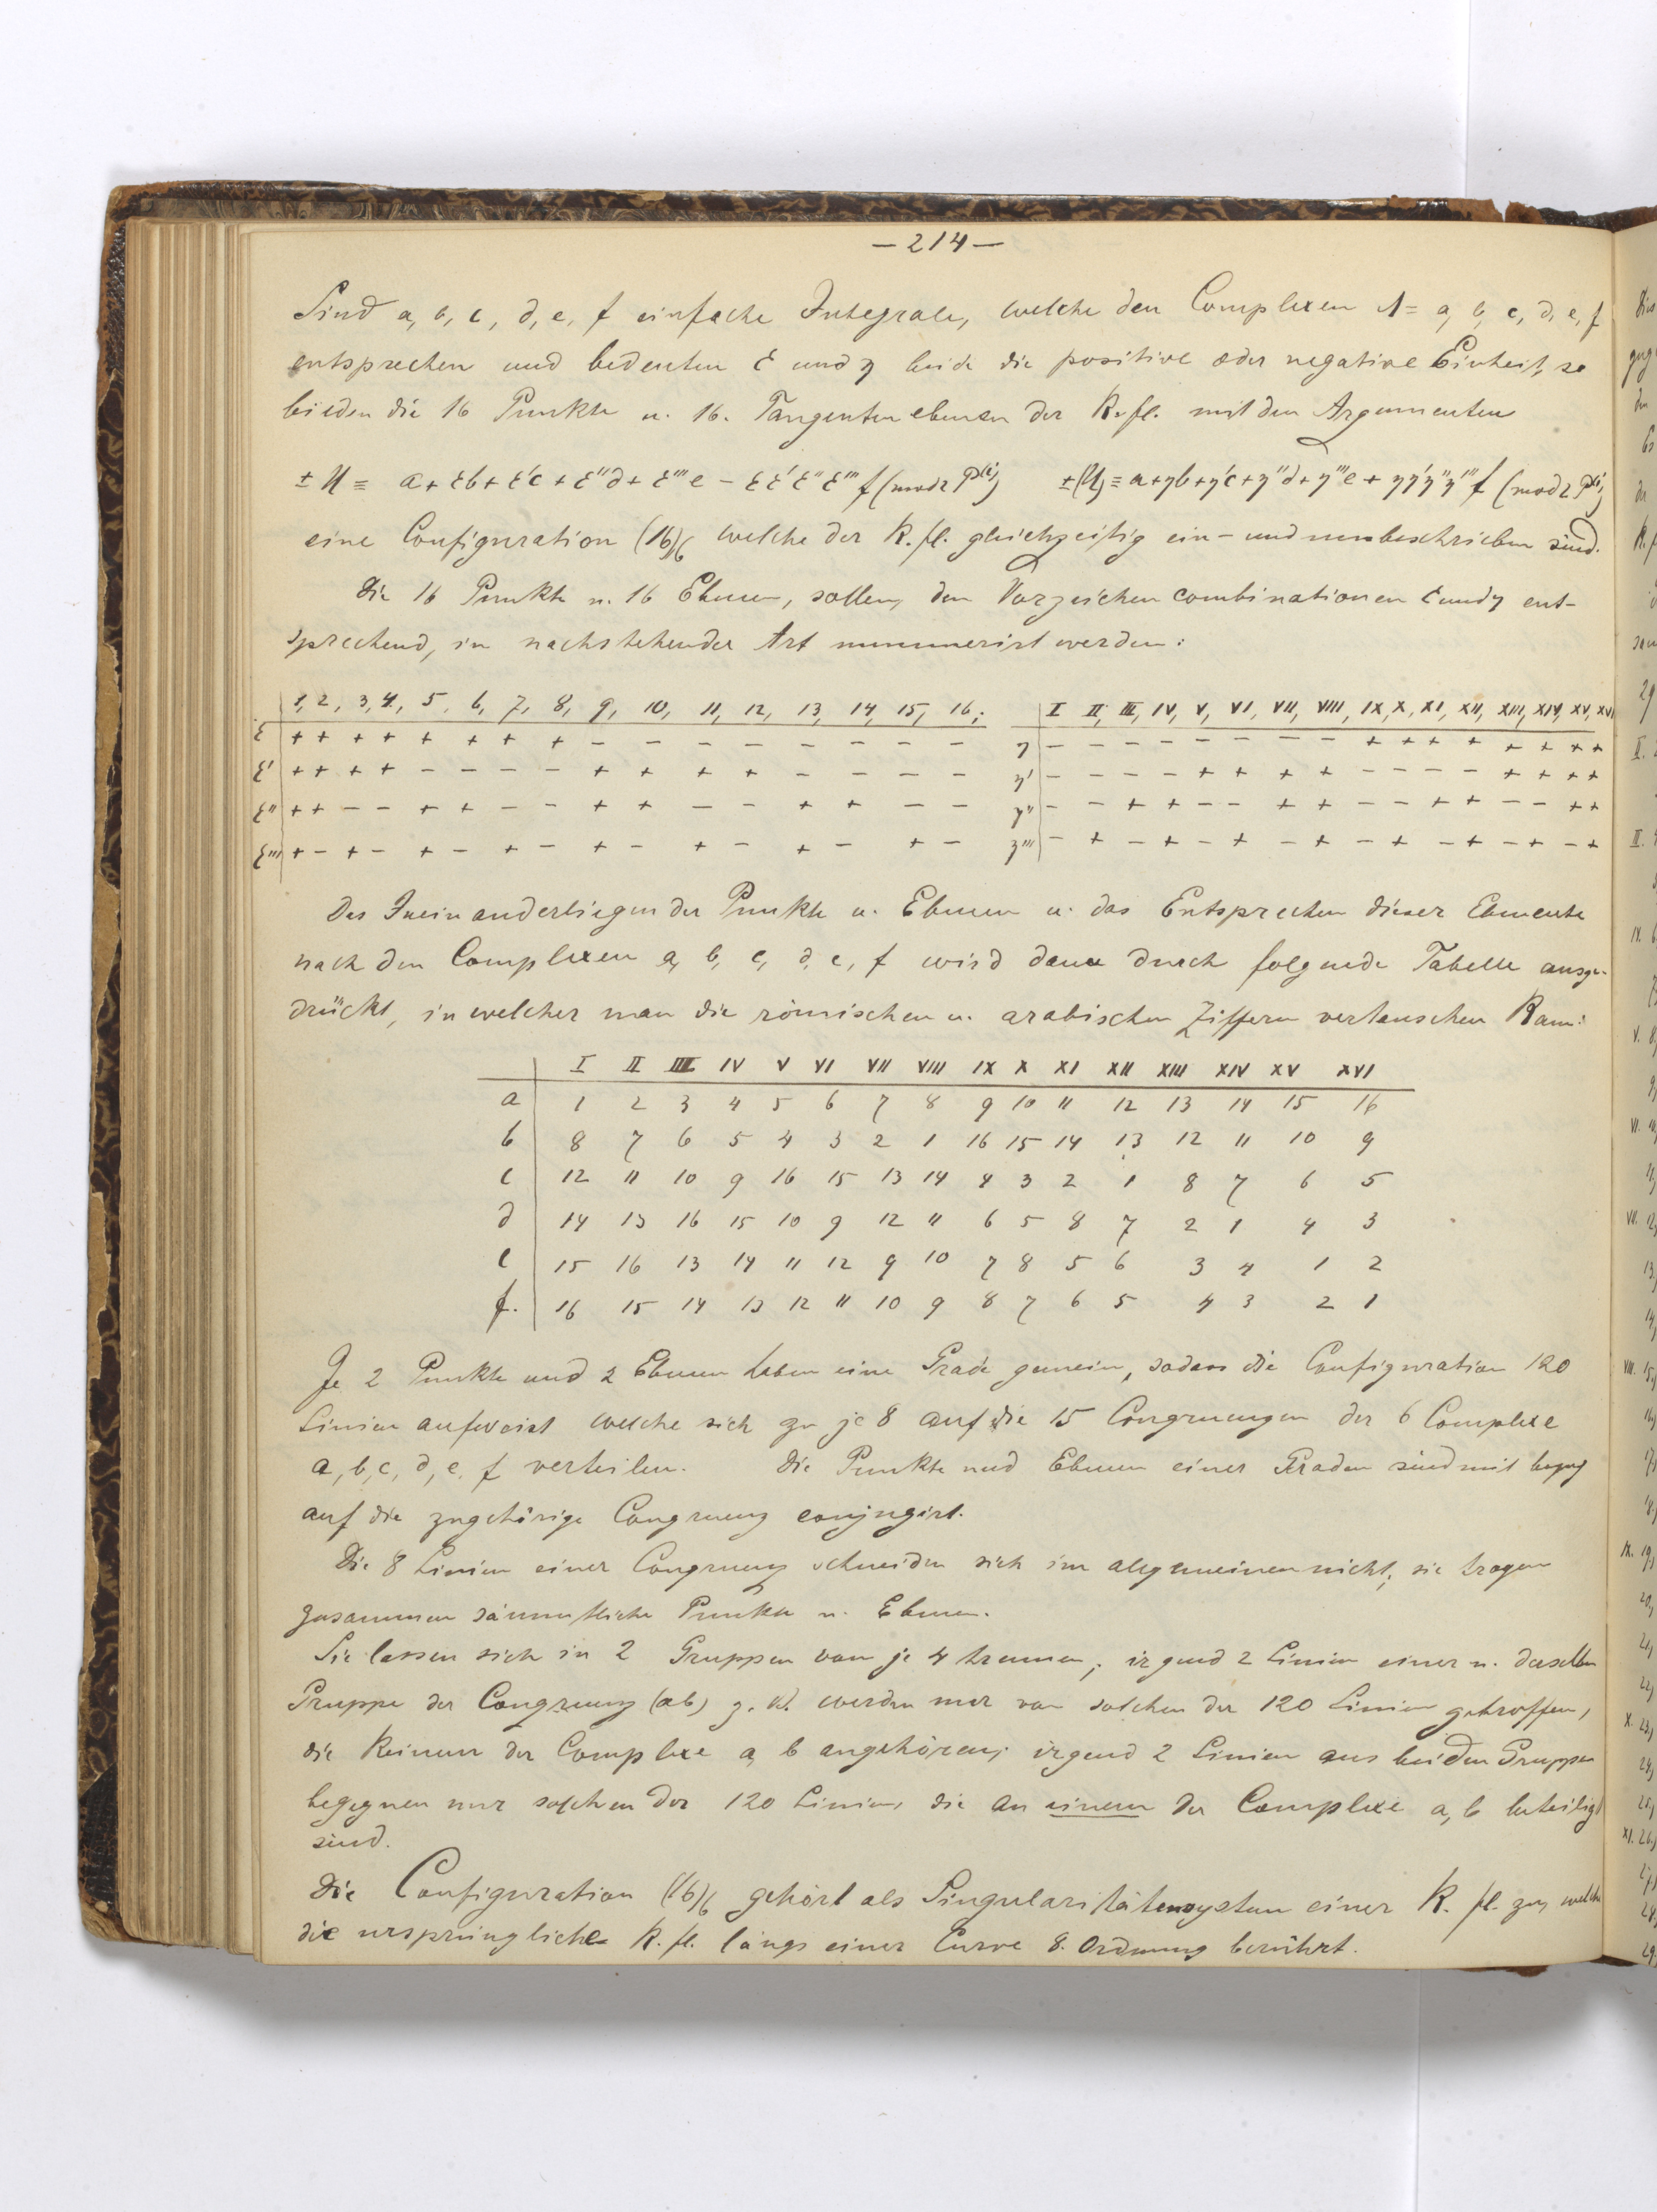 — 214 —
Sind a, b, c, d, e, f einfache Integrale, welche den Complexen Λ = a, b, c, d, e, f
entsprechen und bedeuten ε und η beide die positive oder negative Einheit, so
bilden die 16 Punkte u. 16. Tangentenebenen der K.fl. mit den Argumenten
± U ≡ a + εb + ε'c + ε''d + ε'''e − εε'ε''ε''' f (mod 2 P⁽ⁱ⁾) ± (U) ≡ a + ηb + η'c + η''d + η'''e + ηη'η''η''' f (mod 2 P⁽ⁱ⁾)
eine Configuration (16)₆ welche der K.fl. gleichzeitig ein- und umbeschrieben sind.
Die 16 Punkte u. 16 Ebenen, sollen, den Vorzeichencombinationen ε und η ent-
sprechend, in nachstehender Art nummerirt werden:
1, 2, 3, 4, 5, 6, 7, 8, 9, 10, 11, 12, 13, 14, 15, 16; I II, III, IV, V, VI, VII, VIII, IX, X, XI, XII, XIII, XIV, XV, XVI
ε + + + + + + + + − − − − − − − − η − − − − − − − − + + + + + + + +
ε' + + + + − − − − + + + + − − − − η' − − − − + + + + − − − − + + + +
ε'' + + − − + + − − + + − − + + − − η'' − − + + − − + + − − + + − − + +
ε''' + − + − + − + − + − + − + − + − η''' − + − + − + − + − + − + − + − +
Das Ineinanderliegen der Punkte u. Ebenen u. das Entsprechen dieser Elemente
nach den Complexen a, b, c, d, e, f wird dann durch folgende Tabelle ausge-
drückt, in welcher man die römischen u. arabischen Ziffern vertauschen kann:
I II III IV V VI VII VIII IX X XI XII XIII XIV XV XVI
a 1 2 3 4 5 6 7 8 9 10 11 12 13 14 15 16
b 8 7 6 5 4 3 2 1 16 15 14 13 12 11 10 9
c 12 11 10 9 16 15 13 14 4 3 2 1 8 7 6 5
d 14 13 16 15 10 9 12 11 6 5 8 7 2 1 4 3
e 15 16 13 14 11 12 9 10 7 8 5 6 3 4 1 2
f. 16 15 14 13 12 11 10 9 8 7 6 5 4 3 2 1
Je 2 Punkte und 2 Ebenen haben eine Grade gemein, sodass die Configuration 120
Linien aufweist welche sich zu je 8 auf die 15 Congruenzen der 6 Complexe
a, b, c, d, e, f verteilen. Die Punkte und Ebenen einer Graden sind mit bezug
auf die zugehörige Congruenz conjugirt.
Die 8 Linien einer Congruenz schneiden sich im allgemeinen nicht; sie tragen
zusammen sämmtliche Punkte u. Ebenen.
Sie lassen sich in 2 Gruppen von je 4 trennen; irgend 2 Linien einer u. derselben
Gruppe der Congruenz (ab) z. B. werden nur von solchen der 120 Linien getroffen,
die keinem der Complexe a, b angehören; irgend 2 Linien aus beiden Gruppen
begegnen nur solchen der 120 Linien, die an einem der Complexe a, b beteiligt
sind.
Die Configuration (16)₆ gehört als Singularitätensystem einer K. fl. zu, welche
die ursprüngliche K. fl. längs einer Curve 8. Ordnung berührt.